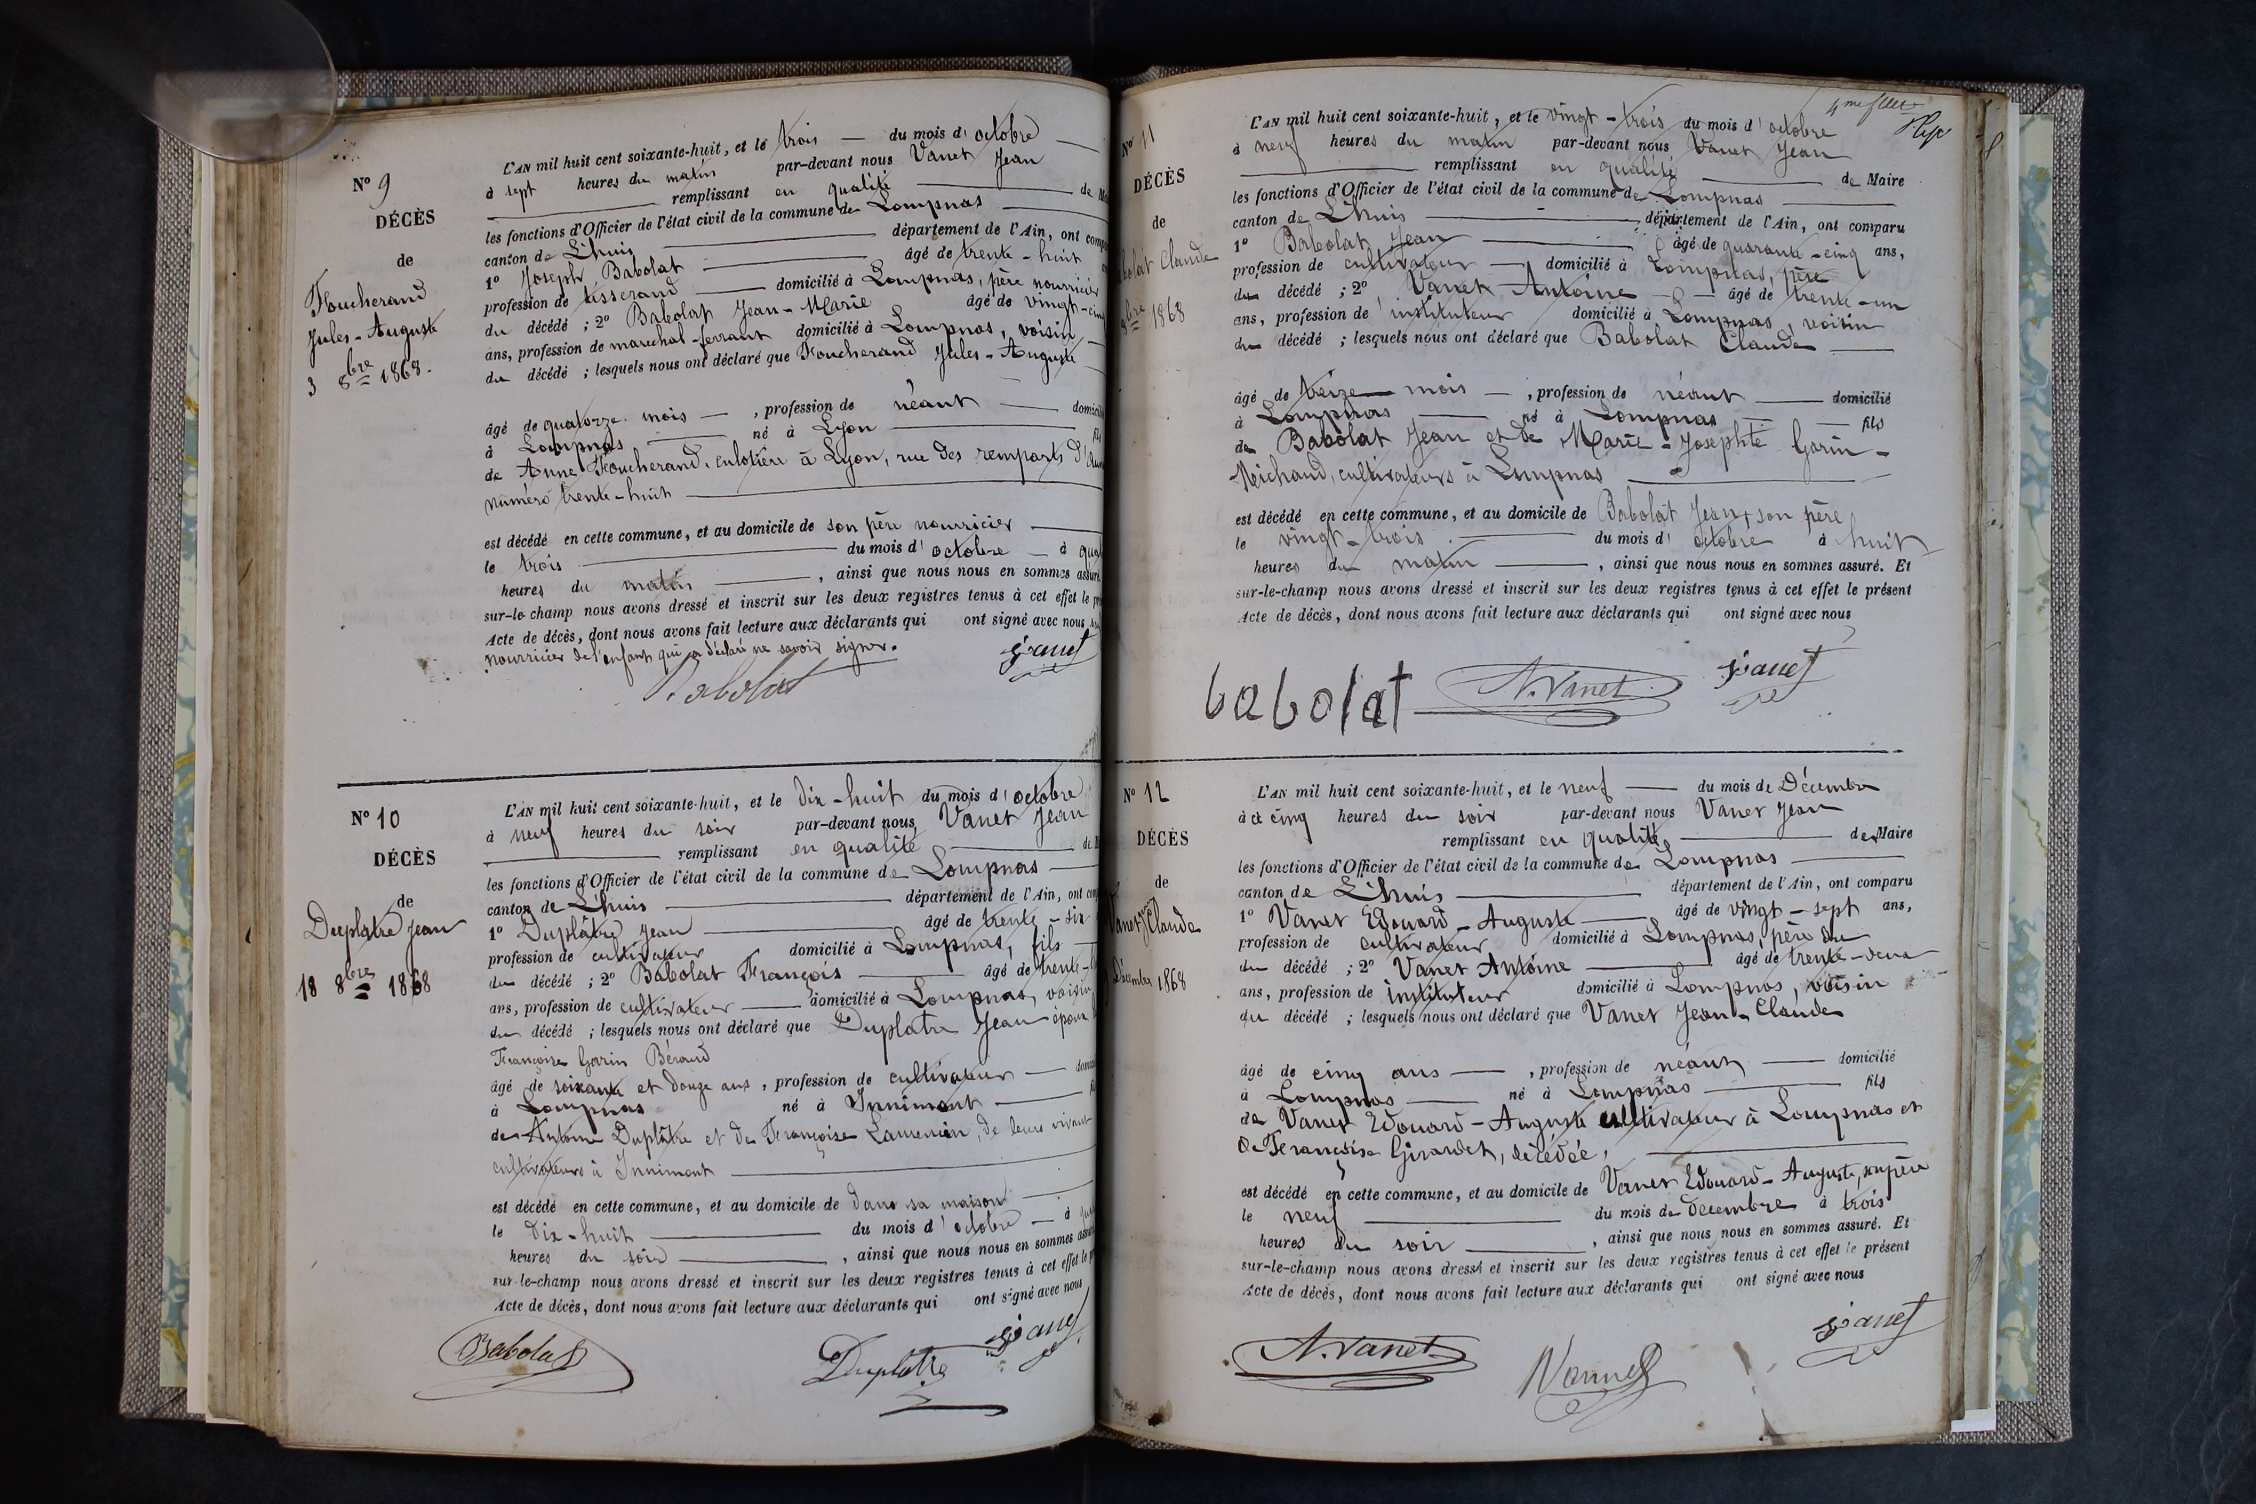 N° 9
DÉCÈS
de
Foucherand
Jules-Auguste
3 8bre 1868.
L'AN mil huit cent soixante-huit, et le trois du mois d'octobre
à sept heures du matin par-devant nous Vanet Jean
remplissant en qualité de
les fonctions d'Officier de l'état civil de la commune de Lompnas
canton de Lhuis département de l'Ain, ont
1° Joseph Babolat âgé de trente-huit
profession de tisserand domicilié à Lompnas, père nourricier
du décédé ; 2° Babolat Jean-Marie âgé de vingt-cinq
ans, profession de maréchal-ferrant domicilié à Lompnas, voisin
du décédé ; lesquels nous ont déclaré que Foucherand Jules-Auguste
âgé de quatorze mois , profession de néant
à Lompnas né à Lyon
de Anne Foucherand, culotière à Lyon, rue des remparts
numéro trente-huit
est décédé en cette commune, et au domicile de son père nourricier
le trois du mois d'octobre à
heures du matin , ainsi que nous nous en sommes assuré.
sur-le-champ nous avons dressé et inscrit sur les deux registres tenus à cet effet le
Acte de décès, dont nous avons fait lecture aux déclarants qui ont signé avec nous
nourricier de l'enfant qui a déclaré ne savoir signer.
Babolat jvanet
N° 10
DÉCÈS
de
Duplatre Jean
18 8bre 1868
L'AN mil huit cent soixante-huit, et le dix-huit du mois d'octobre
à neuf heures du soir par-devant nous Vanet Jean
remplissant en qualité de
les fonctions d'Officier de l'état civil de la commune de Lompnas
canton de Lhuis département de l'Ain, ont
1° Duplâtre Jean âgé de trente-six
profession de cultivateur domicilié à Lompnas, fils
du décédé ; 2° Babolat François âgé de trente-
ans, profession de cultivateur domicilié à Lompnas, voisin
du décédé ; lesquels nous ont déclaré que Duplatre Jean époux
Françoise Garin Béraud
âgé de soixante et douze ans , profession de cultivateur
à Lompnas né à Innimont
de Antoine Duplâtre et de Françoise Laurencin, de leur vivant
cultivateurs à Innimont
est décédé en cette commune, et au domicile de dans sa maison
le dix-huit du mois d'octobre à
heures du soir , ainsi que nous nous en sommes
sur-le-champ nous avons dressé et inscrit sur les deux registres tenus à cet effet le
Acte de décès, dont nous avons fait lecture aux déclarants qui ont signé avec nous
Babolat Duplatre jvanet
4me
N° 11
DÉCÈS
de
Claude
8bre 1868
L'AN mil huit cent soixante-huit, et le vingt-trois du mois d'octobre
à neuf heures du matin par-devant nous Vanet Jean
remplissant en qualité de Maire
les fonctions d'Officier de l'état civil de la commune de Lompnas
canton de Lhuis département de l'Ain, ont comparu
1° Babolat Jean âgé de quarante-cinq ans,
profession de cultivateur domicilié à Lompnas, père
du décédé ; 2° Vanet Antoine âgé de trente-un
ans, profession de instituteur domicilié à Lompnas, voisin
du décédé ; lesquels nous ont déclaré que Babolat Claude
âgé de treize mois , profession de néant domicilié
à Lompnas né à Lompnas fils
de Babolat Jean et de Marie-Josephte Garin-
Michaud, cultivateurs à Lompnas
est décédé en cette commune, et au domicile de Babolat Jean, son père
le vingt-trois du mois d'octobre à huit
heures du matin , ainsi que nous nous en sommes assuré. Et
sur-le-champ nous avons dressé et inscrit sur les deux registres tenus à cet effet le présent
Acte de décès, dont nous avons fait lecture aux déclarants qui ont signé avec nous
babolat A. Vanet jvanet
N° 12
DÉCÈS
de
Vanet Jean Claude
Décembre 1868
L'AN mil huit cent soixante-huit, et le neuf du mois de Décembre
à cinq heures du soir par-devant nous Vanet Jean
remplissant en qualité de Maire
les fonctions d'Officier de l'état civil de la commune de Lompnas
canton de Lhuis département de l'Ain, ont comparu
1° Vanet Edouard-Auguste âgé de vingt-sept ans,
profession de cultivateur domicilié à Lompnas, père du
du décédé ; 2° Vanet Antoine âgé de trente-deux
ans, profession de instituteur domicilié à Lompnas, voisin
du décédé ; lesquels nous ont déclaré que Vanet Jean-Claude
âgé de cinq ans , profession de néant domicilié
à Lompnas né à Lompnas fils
de Vanet Edouard-Auguste cultivateur à Lompnas et
de Françoise Girardet, décédée,
est décédé en cette commune, et au domicile de Vanet Edouard-Auguste, son père
le neuf du mois de décembre à trois
heures du soir , ainsi que nous nous en sommes assuré. Et
sur-le-champ nous avons dressé et inscrit sur les deux registres tenus à cet effet le présent
Acte de décès, dont nous avons fait lecture aux déclarants qui ont signé avec nous
A. Vanet Vannet jvanet